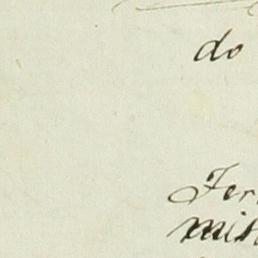 do
Fer
mis